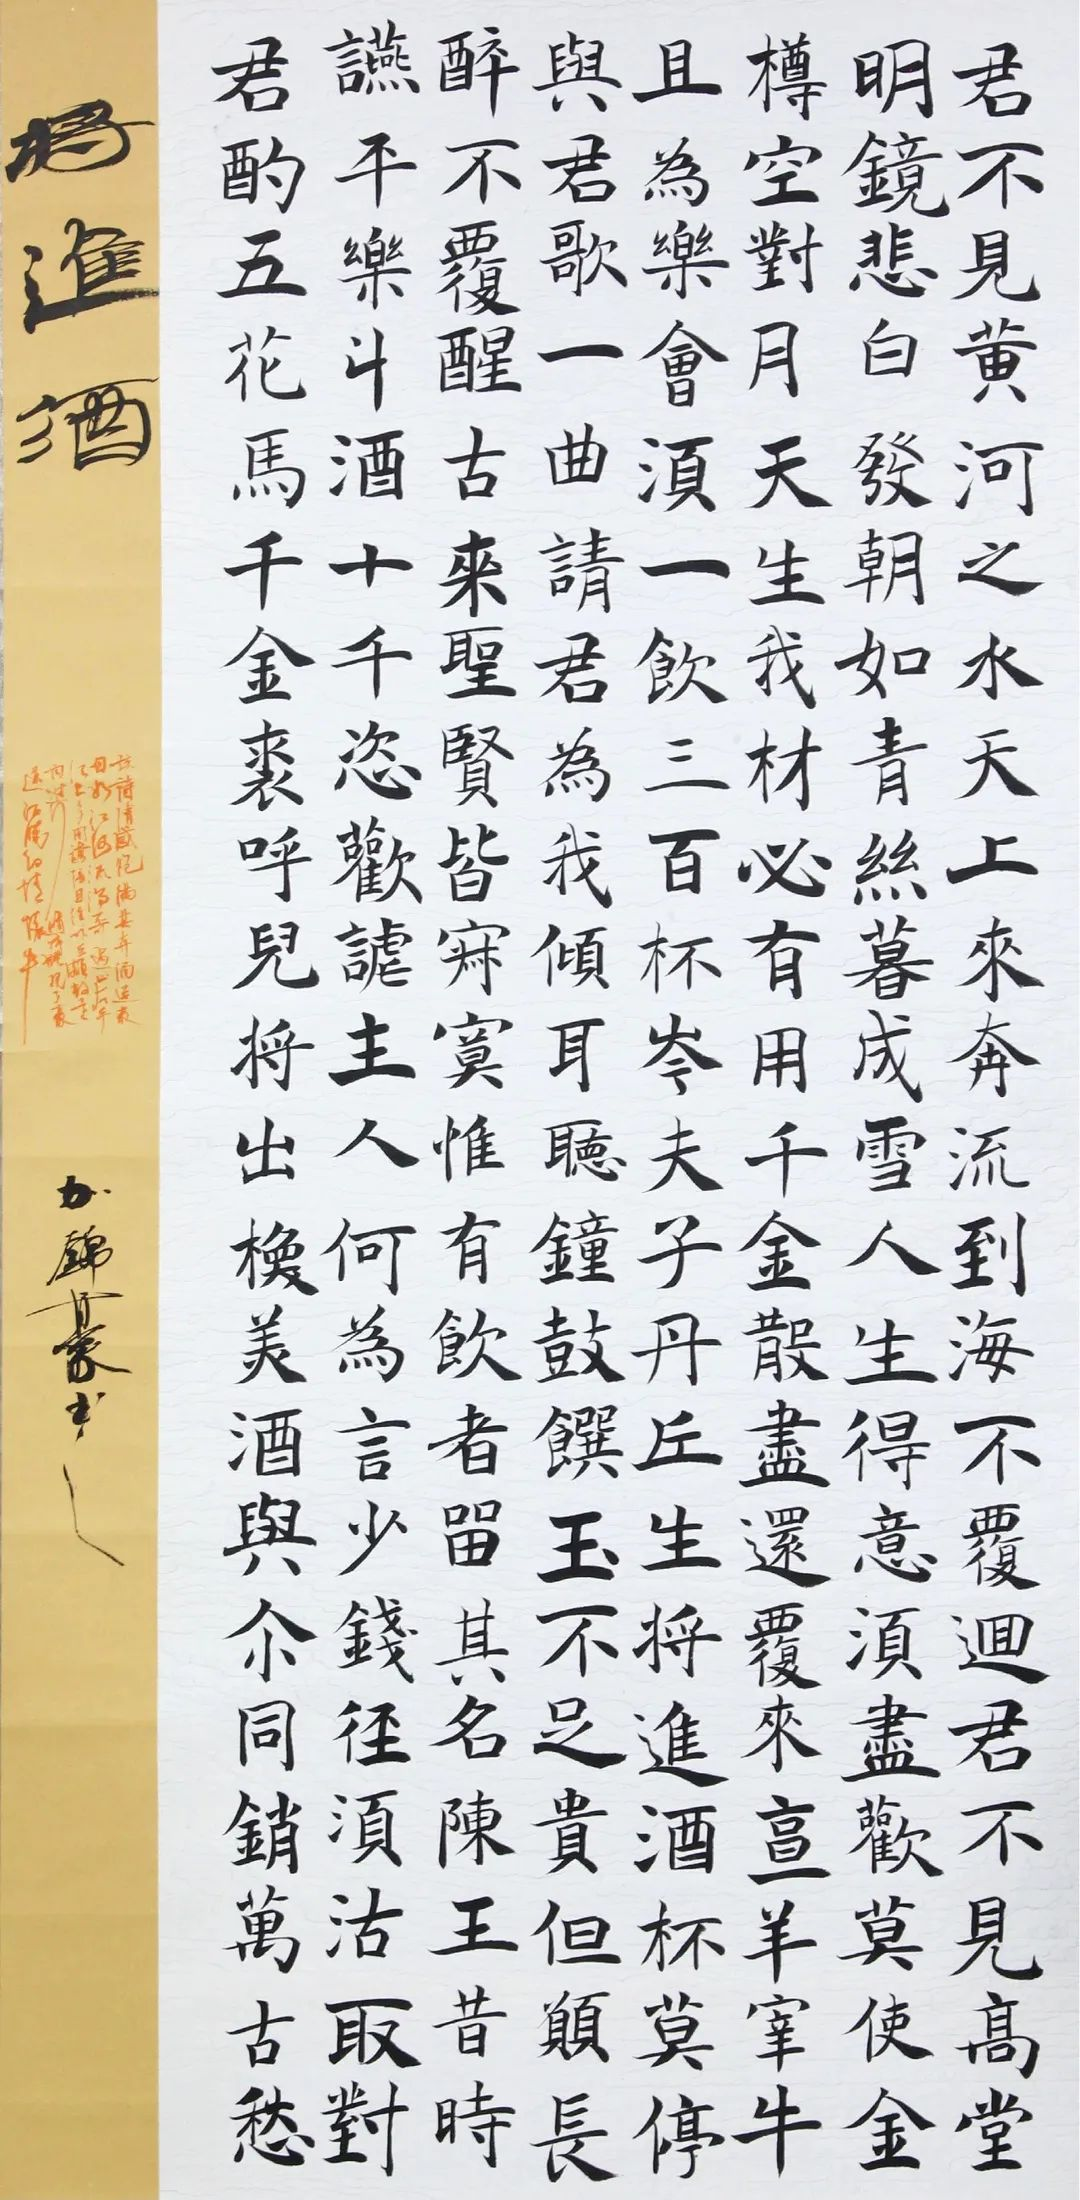 君不見黄河之水天上來奔流到海不覆迴君不見高堂
明鏡悲白發朝如青絲暮成雪人生得意湏盡歡莫使金
樽空對月天生我材必有用千金散盡還覆來亯羊宰牛
且為樂會湏一飲三百杯岑夫子丹丘生将進酒杯莫停
與君歌一曲請君為我傾耳聽鐘鼓饌玉不足貴但願長
醉不覆醒古來聖賢皆寂寞惟有飲者留其名陳王昔時
讌平樂斗酒十千恣歡謔主人何為言少錢径湏沽取對
君酌五花馬千金裘呼兒将出換美酒與尒同銷萬古愁
将進酒
錦豪书